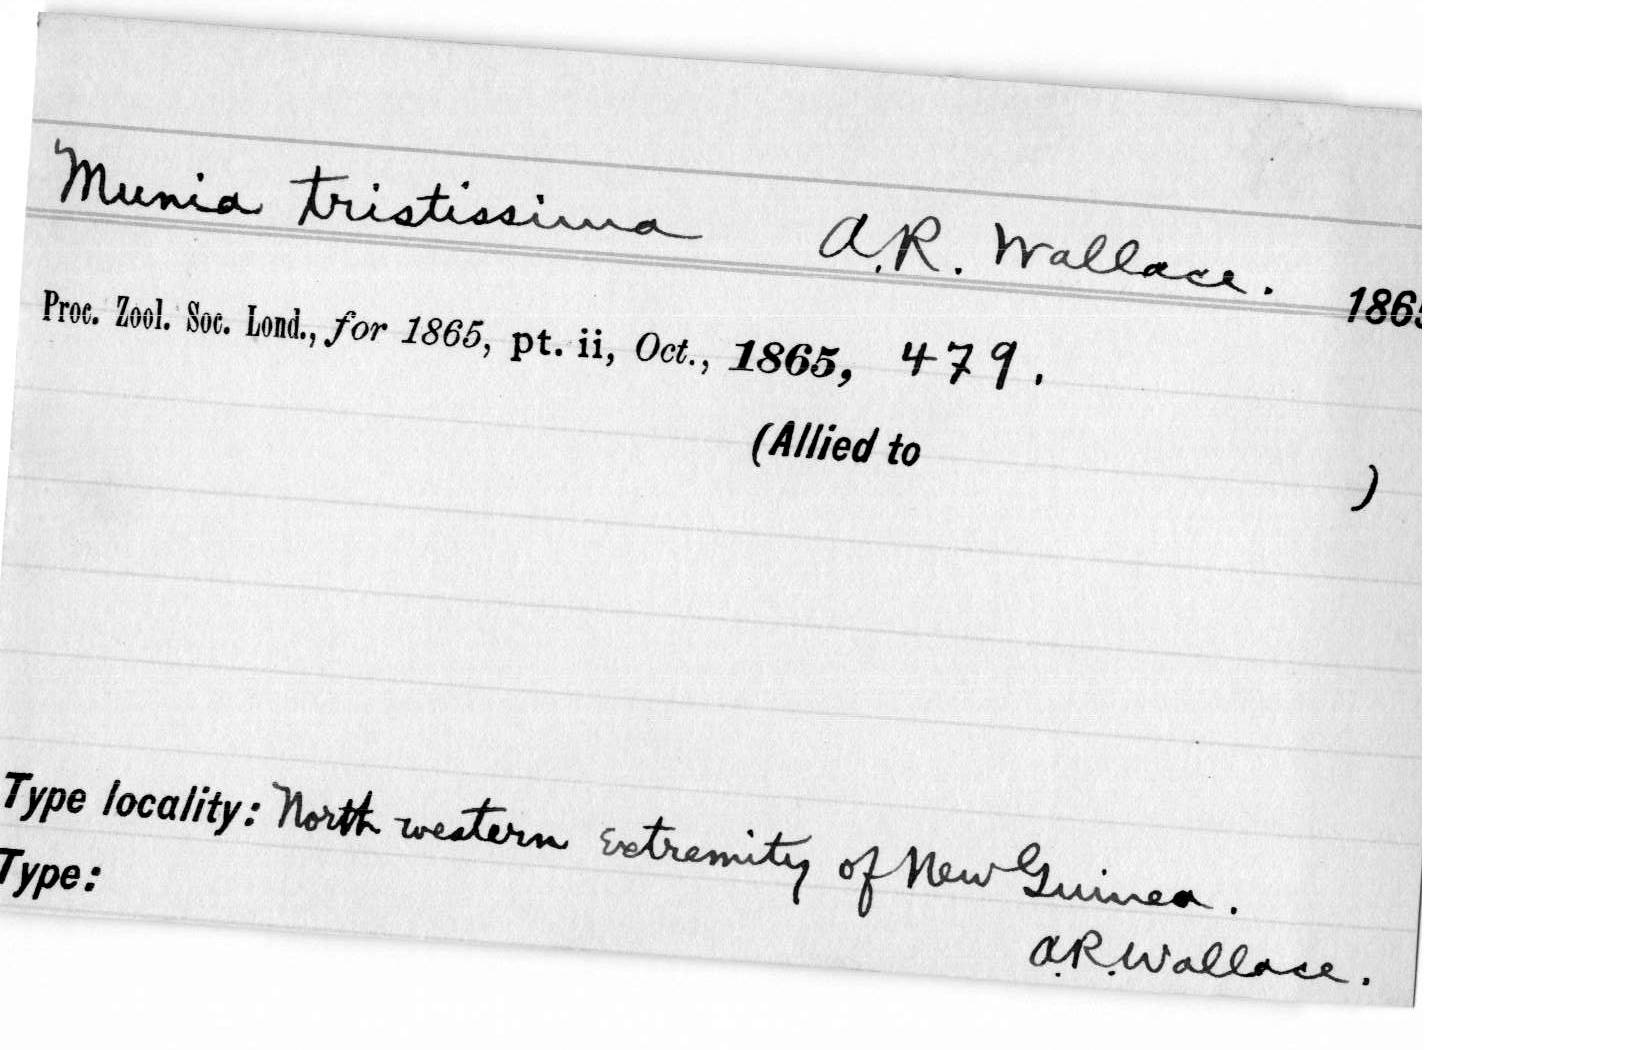 Munia tristissima A.R. Wallace. 1865
Proc. Zool. Soc. Lond., for 1865, pt. ii, Oct., 1865, 479.
(Allied to )
Type locality: North western extremity of New Guinea.
Type:
A.R. Wallace.